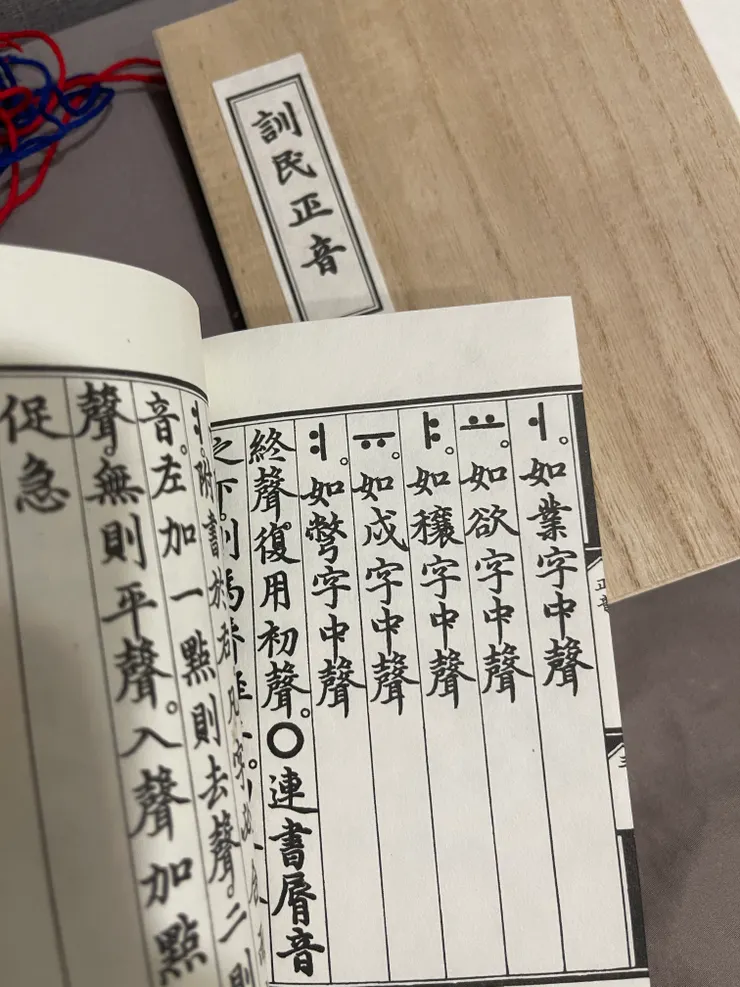 訓民正音
ㅓ。如業字中聲
ㅛ。如欲字中聲
ㅑ。如穰字中聲
ㅠ。如戌字中聲
ㅕ。如彆字中聲
終聲復用初聲。〇連書脣音
之下。則
附書於右。凡字必
音。左加一點則去聲。二則
聲。無則平聲。入聲加點
促急
正音
三